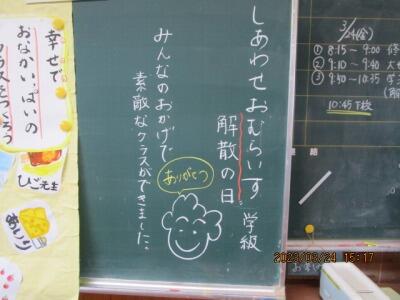 しあわせおむらいす学級
解散の日。
みんなのおかげで
素敵なクラスができました。
ありがとう
幸せで
おなかいっぱいの
クラスをつくろう
ひご先生
3/24(金)
① 8:15~9:00
② 9:10~9:40
③ 9:50~10:35
10:45下校
連絡
2023/03/24 15:17